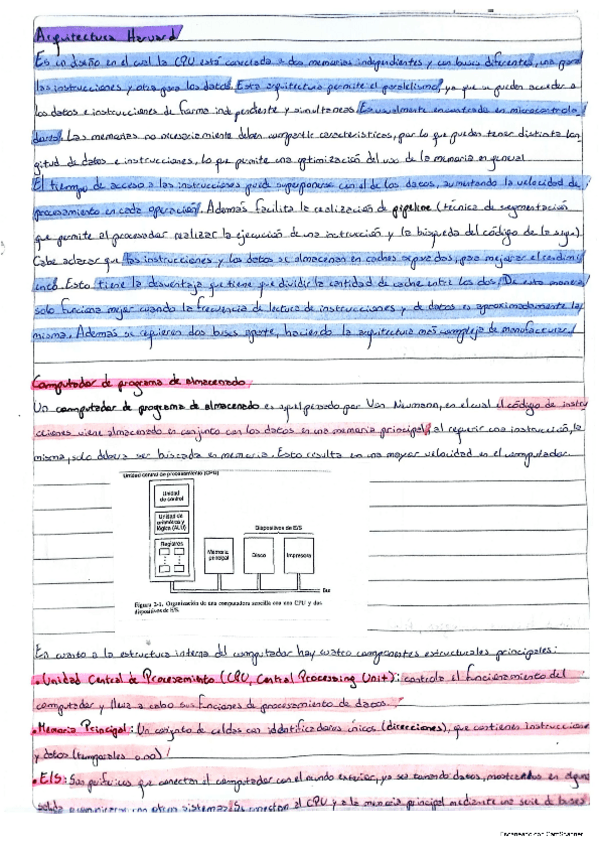 Arquitectura Harvard
Es un diseño en el cual la CPU está conectada a dos memorias independientes y con buses diferentes, una para
las instrucciones y otra para los datos. Esta arquitectura permite el paralelismo, ya que se pueden acceder a
los datos e instrucciones de forma independiente y simultaneas. Es usualmente encontrada en microcontrola
dores. Las memorias no necesariamente deben compartir características, por lo que pueden tener distinta lon
gitud de datos e instrucciones, lo que permite una optimización del uso de la memoria en general.
El tiempo de acceso a las instrucciones puede superponerse con el de los datos, aumentando la velocidad de
procesamiento en cada operación. Además facilita la realización de pipeline (técnica de segmentación
que permite al procesador realizar la ejecución de una instrucción y la búsqueda del código de la sigte)
Cabe aclarar que las instrucciones y los datos se almacenan en caches separadas, para mejorar el rendimi
ento. Esto tiene la desventaja que tiene que dividir la cantidad de cache entre los dos. De esta manera
solo funciona mejor cuando la frecuencia de lectura de instrucciones y de datos es aproximadamente la
misma. Además se requieren dos buses aparte, haciendo la arquitectura más compleja de manufacturar.
Computador de programa de almacenado
Un computador de programa de almacenado es aquel pensado por Van Neumann, en el cual el código de instru
cciones viene almacenado en conjunto con los datos en una memoria principal, al requerir una instrucción, la
misma, solo debera ser buscada en memoria. Esto resulta en una mayor velocidad en el computador.
Unidad central de procesamiento (CPU)
Unidad
de control
Unidad de
aritmética y
lógica (ALU)
Registros
Dispositivos de E/S
Memoria
principal
Disco
Impresora
Bus
Figura 2-1. Organización de una computadora sencilla con una CPU y dos
dispositivos de E/S.
En cuanto a la estructura interna del computador hay cuatro componentes estructurales principales:
• Unidad Central de Procesamiento (CPU, Central Processing Unit): controla el funcionamiento del
computador y lleva a cabo sus funciones de procesamiento de datos.
• Memoria Principal: Un conjunto de celdas con identificadores únicos (direcciones), que contienen instrucciones
y datos (temporales o no)
• E/S: Son periféricos que conectan el computador con el mundo exterior, ya sea tomando datos, mostrandolos en alguna
salida o con otros sistemas. Se conectan al CPU y a la memoria principal mediante una serie de buses
Escaneado con CamScanner